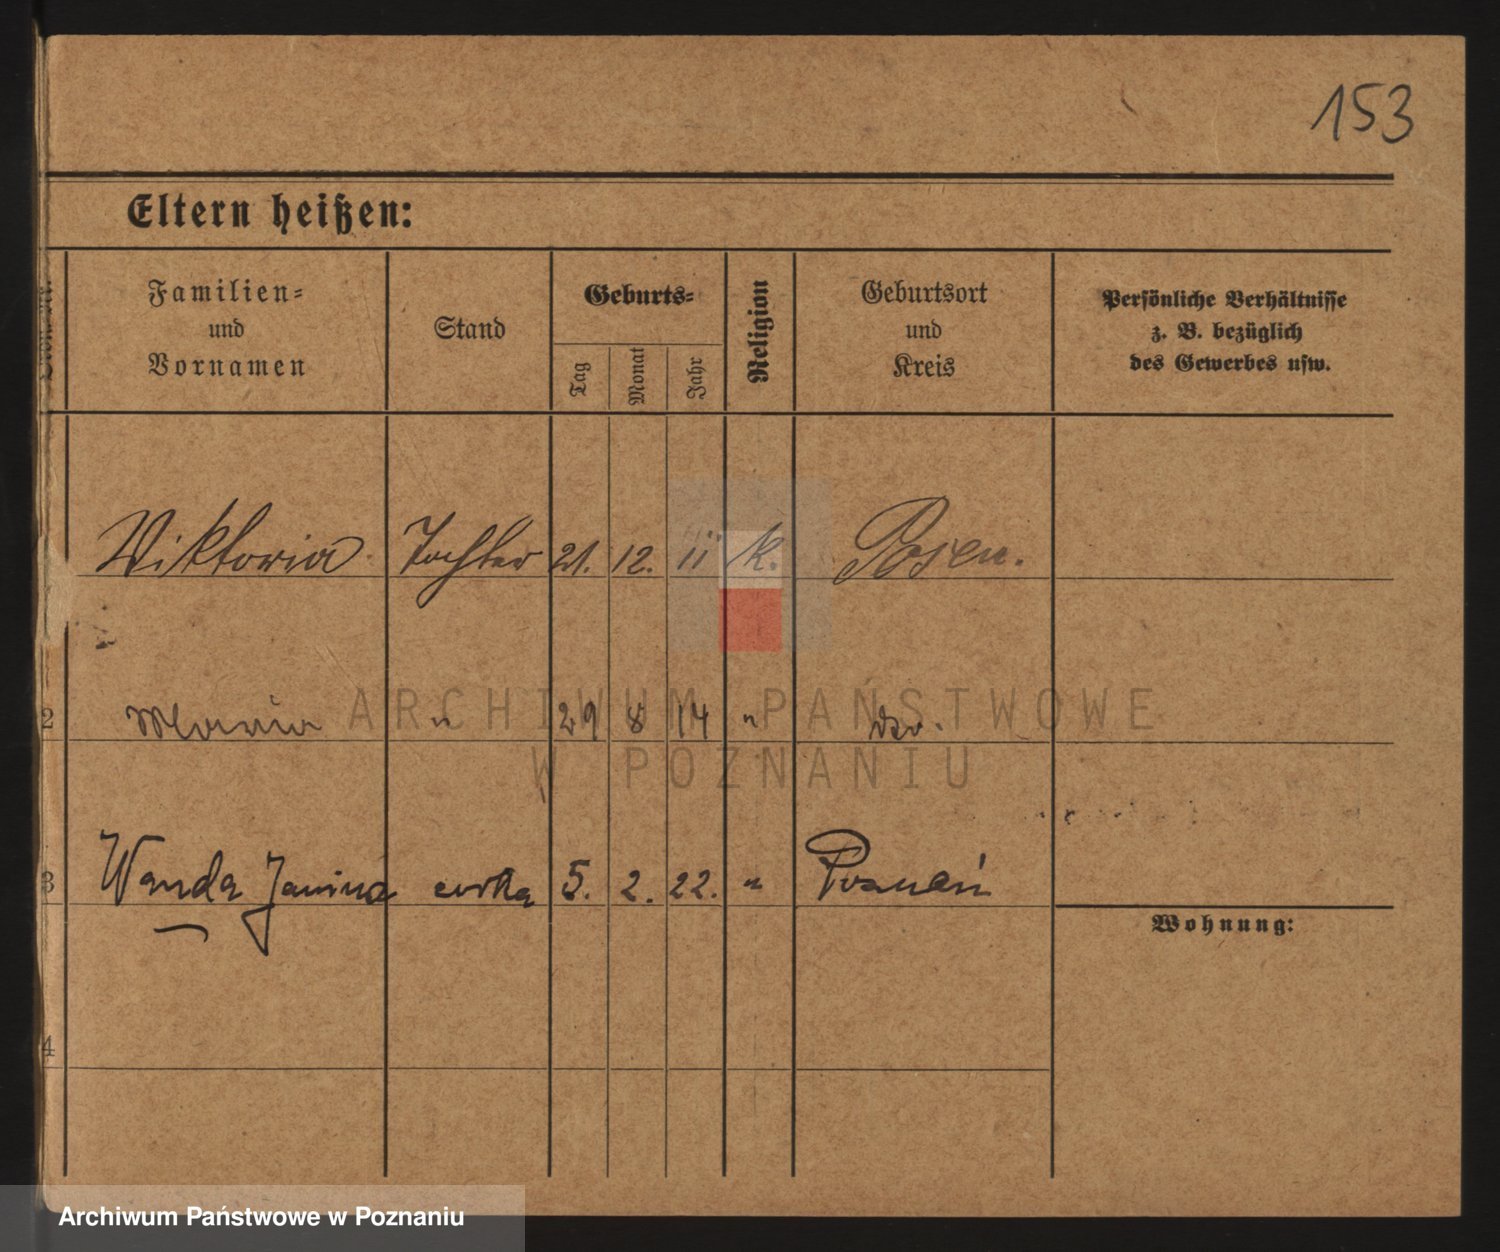 153
Eltern heißen:
Familien= und Vornamen
Stand
Geburts=
Tag
Monat
Jahr
Religion
Geburtsort und Kreis
Persönliche Verhältnisse
z. B. bezüglich
des Gewerbes usw.
Wiktoria Tochter 21. 12. 11 k. Posen.
2 Maria " 29 8 14 "
3 Wanda Janina corka 5. 2. 22. " Poznań
Wohnung:
4
ARCHIWUM PAŃSTWOWE
W POZNANIU
Archiwum Państwowe w Poznaniu